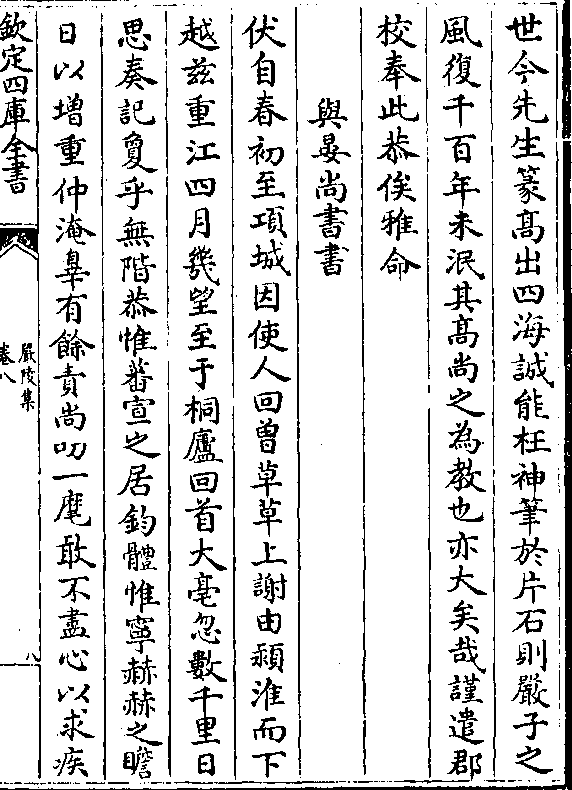 世今先生篆髙出四海誠能枉神筆於片石則嚴子之
風復千百年未泯其髙尚之為教也亦大矣哉謹遣郡
校奉此恭俟雅命
與晏尚書書
伏自春初至項城因使人回曽草草上謝由潁淮而下
越兹重江四月幾望至于桐廬回首大亳忽數千里日
思奏記敻乎無階恭惟蕃宣之居鈞體惟寧赫赫之瞻
日以增重仲淹辠有餘責尚叨一麾敢不盡心以求疾
欽定四庫全書
嚴陵集
卷八
八